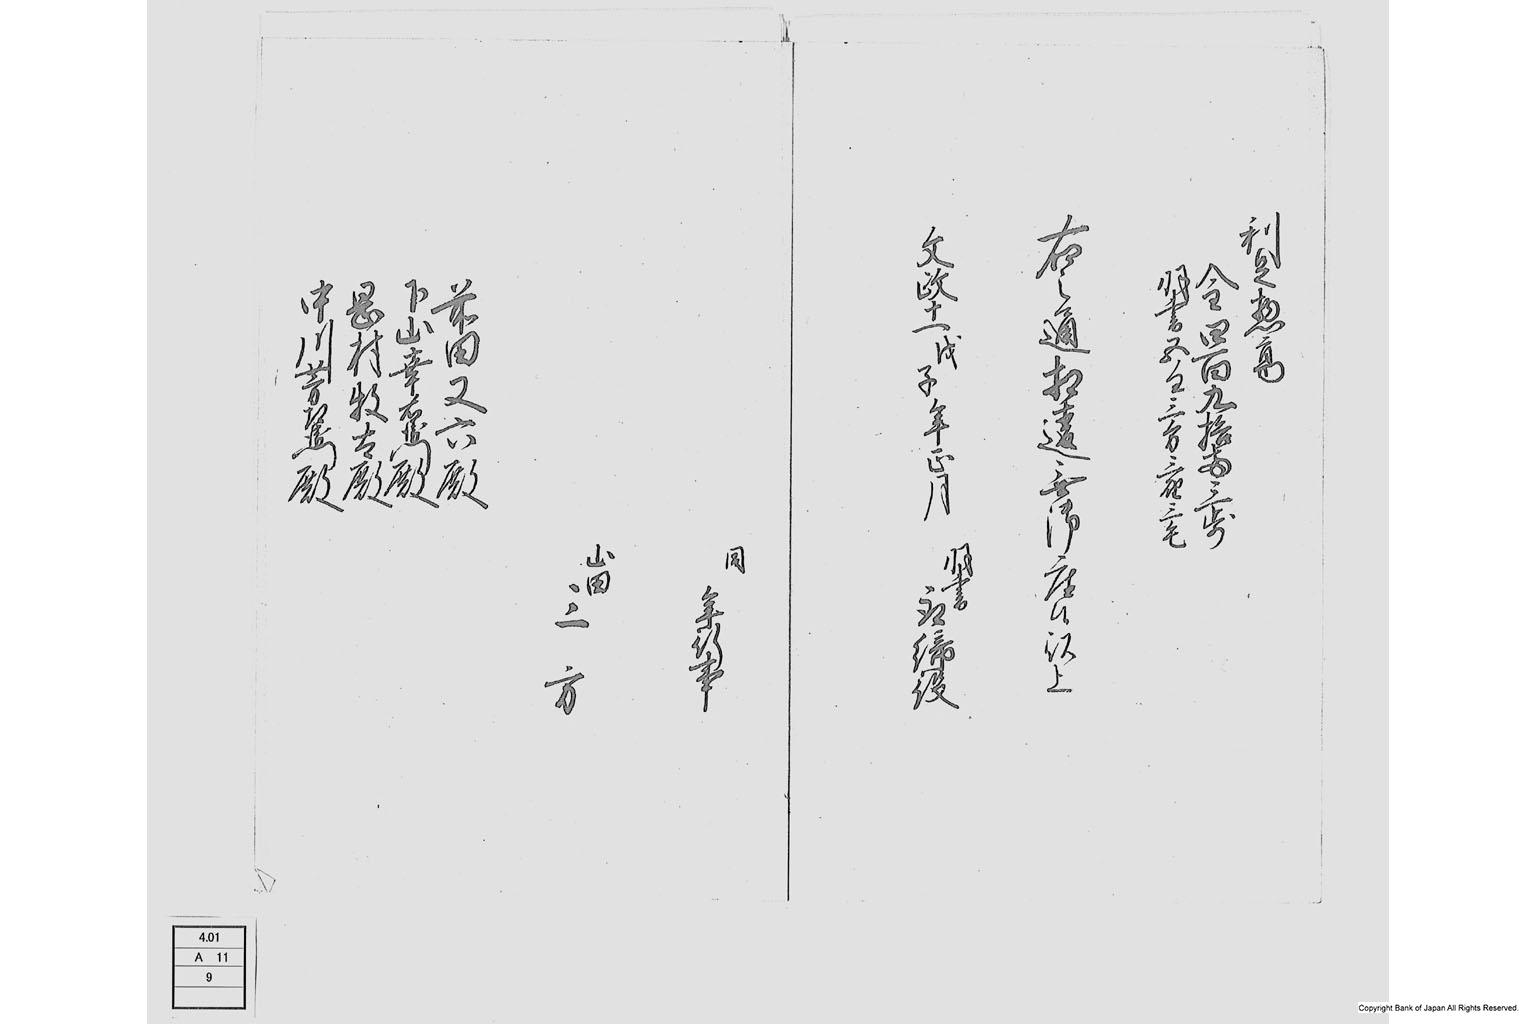 利足惣高
金四百九拾両三歩
羽書五匁三分三厘三毛
右之通相違無御座候以上
文政十一戊子年正月
羽書
取締役
同
年行事
山田
三方
前田又六殿
下山幸右衛門殿
岡村牧太殿
中川 殿
4.01
A 11
9
Copyright Bank of Japan All Rights Reserved.